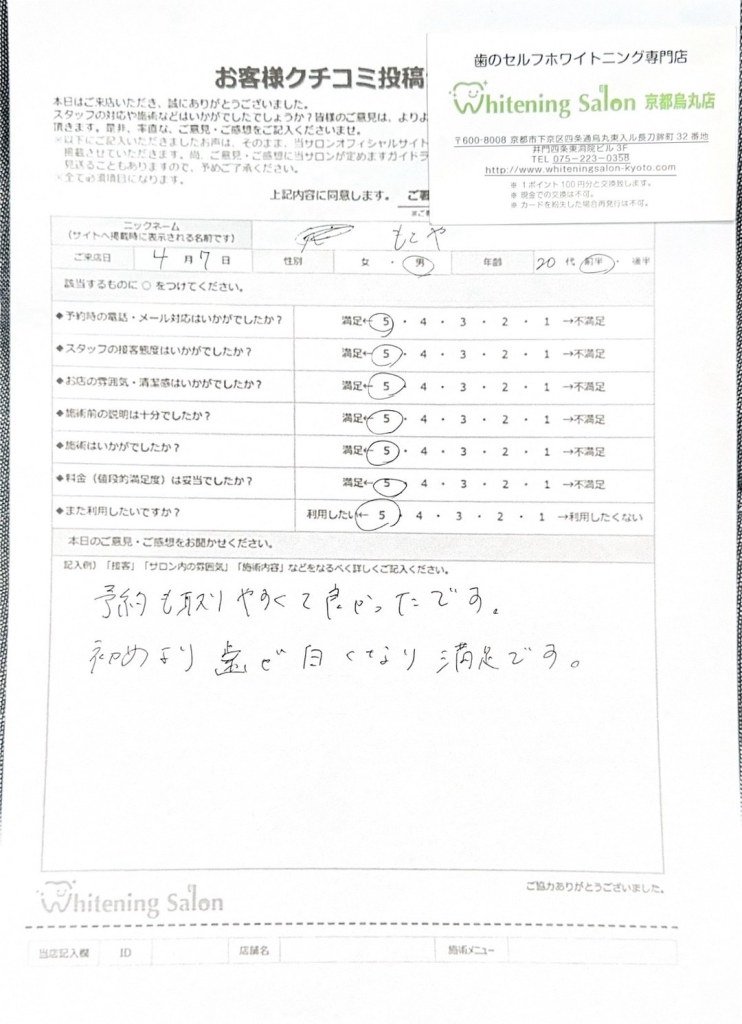 お客様クチコミ投稿
本日はご来店いただき、誠にありがとうございました。
スタッフの対応や施術などはいかがでしたでしょうか？皆様のご意見は、よりよ
頂きます。是非、率直な、ご意見・ご感想をご記入くださいませ。
※以下にご記入いただきましたお声は、そのまま、当サロンオフィシャルサイト
掲載させていただきます。尚、ご意見・ご感想に当サロンが定めますガイドラ
見送ることもありますので、予めご了承ください。
※全て必須項目になります。
上記内容に同意します。 ご署
歯のセルフホワイトニング専門店
Whitening Salon 京都烏丸店
〒600-8008 京都市下京区四条通烏丸東入ル長刀鉾町 32 番地
井門四条東洞院ビル 3F
TEL 075-223-0358
http://www.whiteningsalon-kyoto.com
※ 1ポイント100円分と交換致します。
※ 現金での交換は不可。
※ カードを紛失した場合再発行は不可。
ニックネーム
（サイトへ掲載時に表示される名前です） もこや
ご来店日 4 月 7 日 性別 女 ・ 男 年齢 20 代 前半 ・ 後半
該当するものに ○ をつけてください。
◆予約時の電話・メール対応はいかがでしたか？ 満足← 5 ・ 4 ・ 3 ・ 2 ・ 1 →不満足
◆スタッフの接客態度はいかがでしたか？ 満足← 5 ・ 4 ・ 3 ・ 2 ・ 1 →不満足
◆お店の雰囲気・清潔感はいかがでしたか？ 満足← 5 ・ 4 ・ 3 ・ 2 ・ 1 →不満足
◆施術前の説明は十分でしたか？ 満足← 5 ・ 4 ・ 3 ・ 2 ・ 1 →不満足
◆施術はいかがでしたか？ 満足← 5 ・ 4 ・ 3 ・ 2 ・ 1 →不満足
◆料金（値段的満足度）は妥当でしたか？ 満足← 5 ・ 4 ・ 3 ・ 2 ・ 1 →不満足
◆また利用したいですか？ 利用したい← 5 ・ 4 ・ 3 ・ 2 ・ 1 →利用したくない
本日のご意見・ご感想をお聞かせください。
記入例）「接客」「サロン内の雰囲気」「施術内容」などをなるべく詳しくご記入ください。
予約も取りやすくて良かったです。
初めより歯が白くなり満足です。
ご協力ありがとうございました。
Whitening Salon
当店記入欄 ID 店舗名 施術メニュー